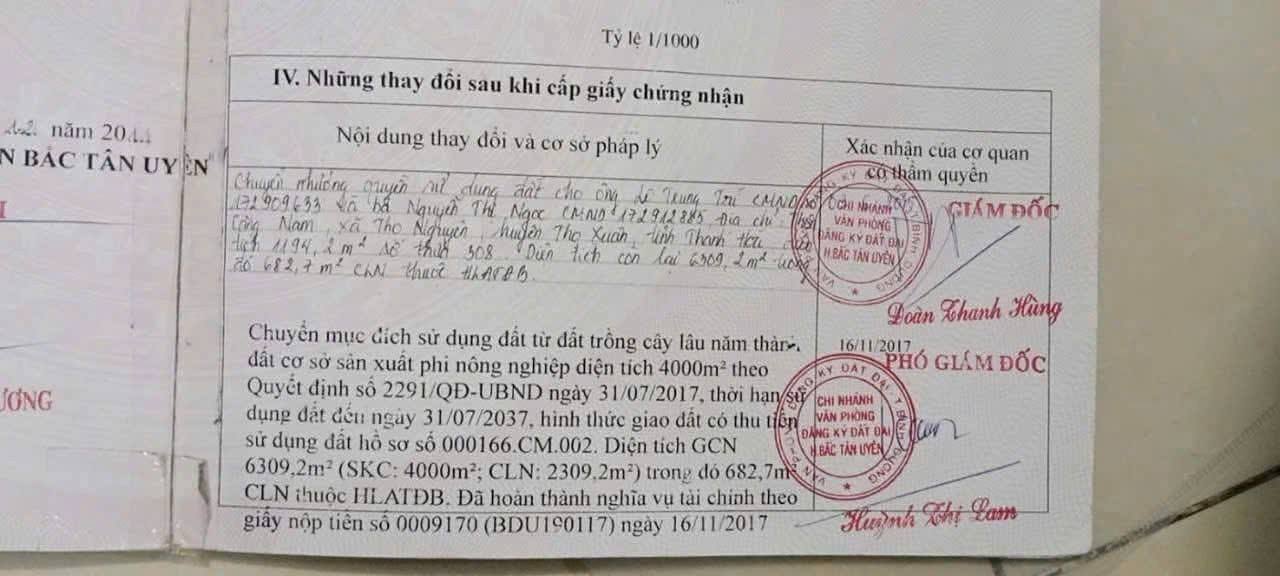 Tỷ lệ 1/1000
năm 20
N BẮC TÂN UYÊN
ƯƠNG
IV. Những thay đổi sau khi cấp giấy chứng nhận
Nội dung thay đổi và cơ sở pháp lý
Xác nhận của cơ quan
có thẩm quyền
Chuyển nhượng quyền sử dụng đất cho ông Lê Trung Trú CMND số
172909633 và bà Nguyễn Thị Ngọc CMND 172912885 Địa chỉ: Thôn
Nam, xã Thọ Nguyên, huyện Thọ Xuân, tỉnh Thanh Hóa, diện
tích 1194,2m² số thửa 308. Diện tích còn lại 6309,2m² trong
đó 682,7m² CLN thuộc HLATĐB.
GIÁM ĐỐC
CHI NHÁNH
VĂN PHÒNG
ĐĂNG KÝ ĐẤT ĐAI
H.BẮC TÂN UYÊN
Đoàn Thanh Hùng
Chuyển mục đích sử dụng đất từ đất trồng cây lâu năm thành
đất cơ sở sản xuất phi nông nghiệp diện tích 4000m² theo
Quyết định số 2291/QĐ-UBND ngày 31/07/2017, thời hạn sử
dụng đất đến ngày 31/07/2037, hình thức giao đất có thu tiền
sử dụng đất hồ sơ số 000166.CM.002. Diện tích GCN
6309,2m² (SKC: 4000m²; CLN: 2309,2m²) trong đó 682,7m²
CLN thuộc HLATĐB. Đã hoàn thành nghĩa vụ tài chính theo
giấy nộp tiền số 0009170 (BDU190117) ngày 16/11/2017
16/11/2017
PHÓ GIÁM ĐỐC
CHI NHÁNH
VĂN PHÒNG
ĐĂNG KÝ ĐẤT ĐAI
H.BẮC TÂN UYÊN
Huỳnh Thị Lam